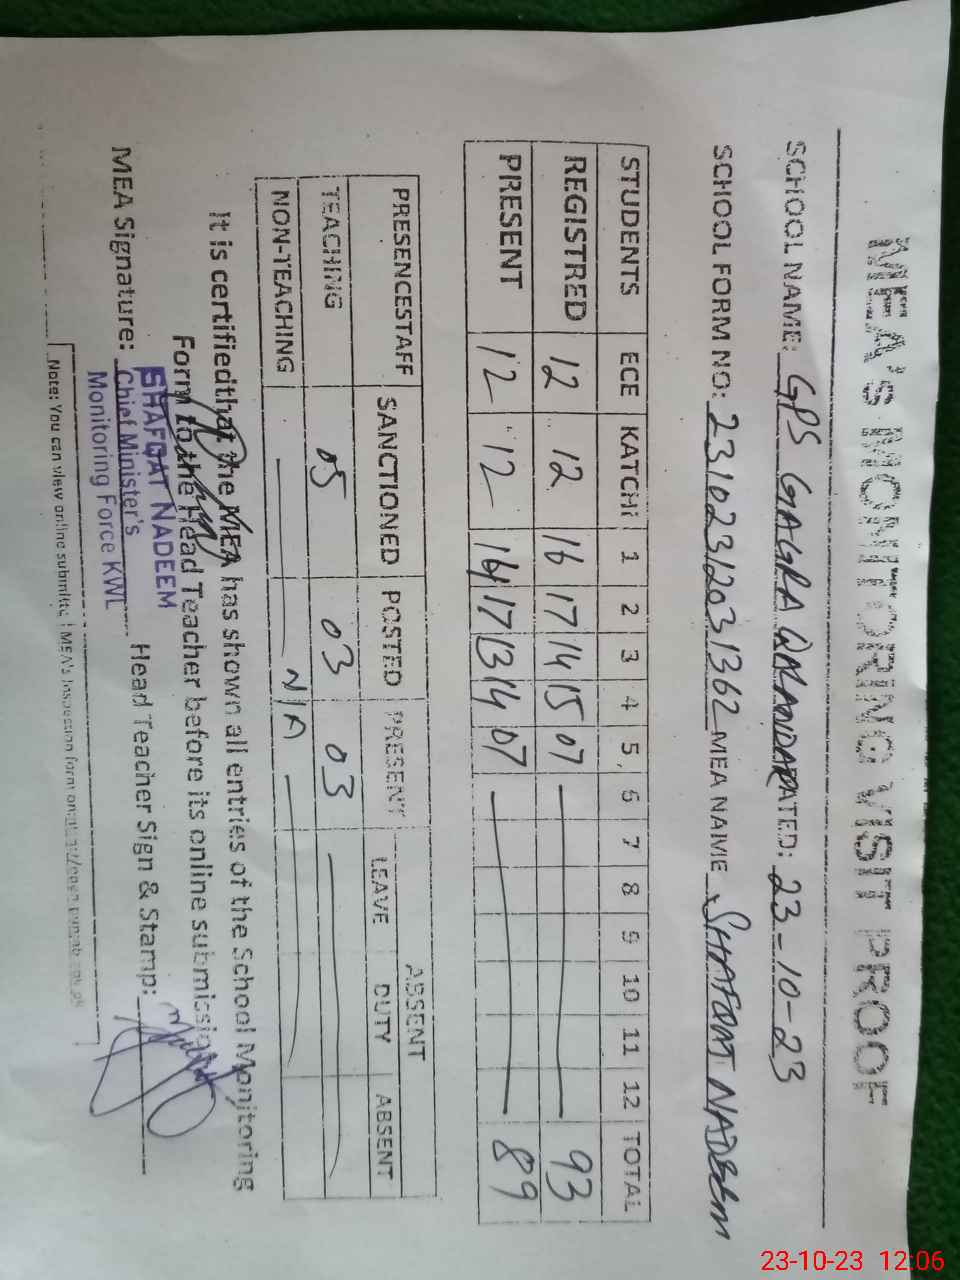 MEA'S MONITORING VISIT PROOF
SCHOOL NAME: GPS GAGRA QALANDAR DATED: 23-10-23
SCHOOL FORM NO: 23102312031362 MEA NAME SHAFQAT NADEEM
STUDENTS ECE KATCHI 1 2 3 4 5 6 7 8 9 10 11 12 TOTAL
REGISTRED 12 12 16 17 14 15 07 93
PRESENT 12 12 14 17 13 14 07 89
PRESENCESTAFF SANCTIONED POSTED PRESENT ABSENT
LEAVE DUTY ABSENT
TEACHING 05 03 03
NON-TEACHING N/A
It is certifiedthat the MEA has shown all entries of the School Monitoring
Form to the Head Teacher before its online submission
MEA Signature: Head Teacher Sign & Stamp:
SHAFQAT NADEEM
Chief Minister's
Monitoring Force KWL
Note: You can view online submitted MEA's Inspection form on
23-10-23 12:06